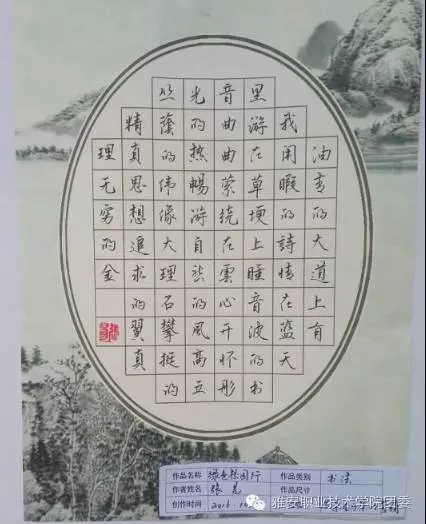 油青的大道上有
我闲暇的詩情在蓝天
里游在草埂上睡音波的书
音曲曲萦绕在雲心干怀形
光的热暢游自的風高立
丛荫的伟像大理石攀挺的
精真思想追求的翼真
理无穷的金
作品名称 绿色校园行 作品类别 书法
作者姓名 张 作品尺寸
创作时间 2016
雅安职业技术学院团委